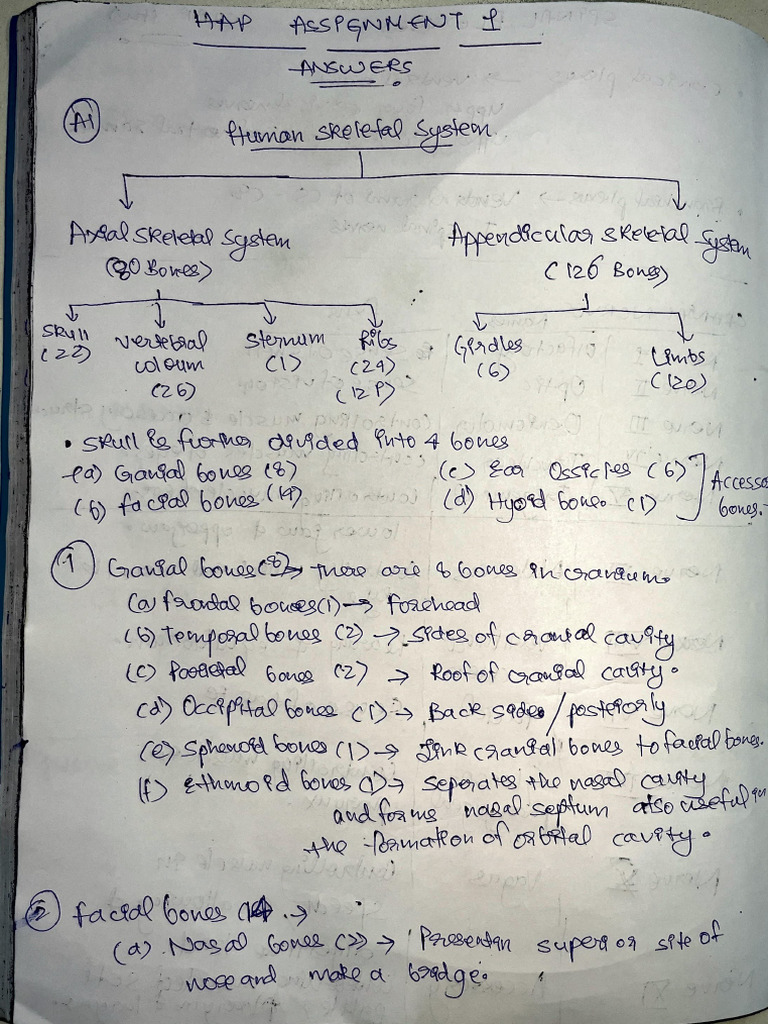 HAP ASSIGNMENT 1
ANSWERS
A1
Human Skeletal System
Axial Skeletal System
(80 Bones)
Appendicular skeletal System
(126 Bones)
Skull
(22)
Vertebral
coloum
(26)
Sternum
(1)
Ribs
(24)
(12P)
Girdles
(6)
Limbs
(120)
• Skull is further divided into 4 bones
(a) Cranial bones (8)
(b) facial bones (14)
(c) Ear Ossicles (6)
(d) Hyoid bone (1)
Accesso
bones.
1 Cranial bones (8) → there are 8 bones in cranium.
(a) frontal bones (1) → forehead
(b) Temporal bones (2) → Sides of cranial cavity
(c) Parietal bones (2) → Roof of cranial cavity.
(d) Occipital bones (1) → Back sides/posteriorly
(e) Sphenoid bones (1) → Link cranial bones to facial bones.
(f) Ethmoid bones (1) → seperates the nasal cavity
and forms nasal septum also useful in
the formation of orbital cavity.
2 facial bones (14) →
(a) Nasal bones (2) → Present in superior site of
nose and make a bridge.